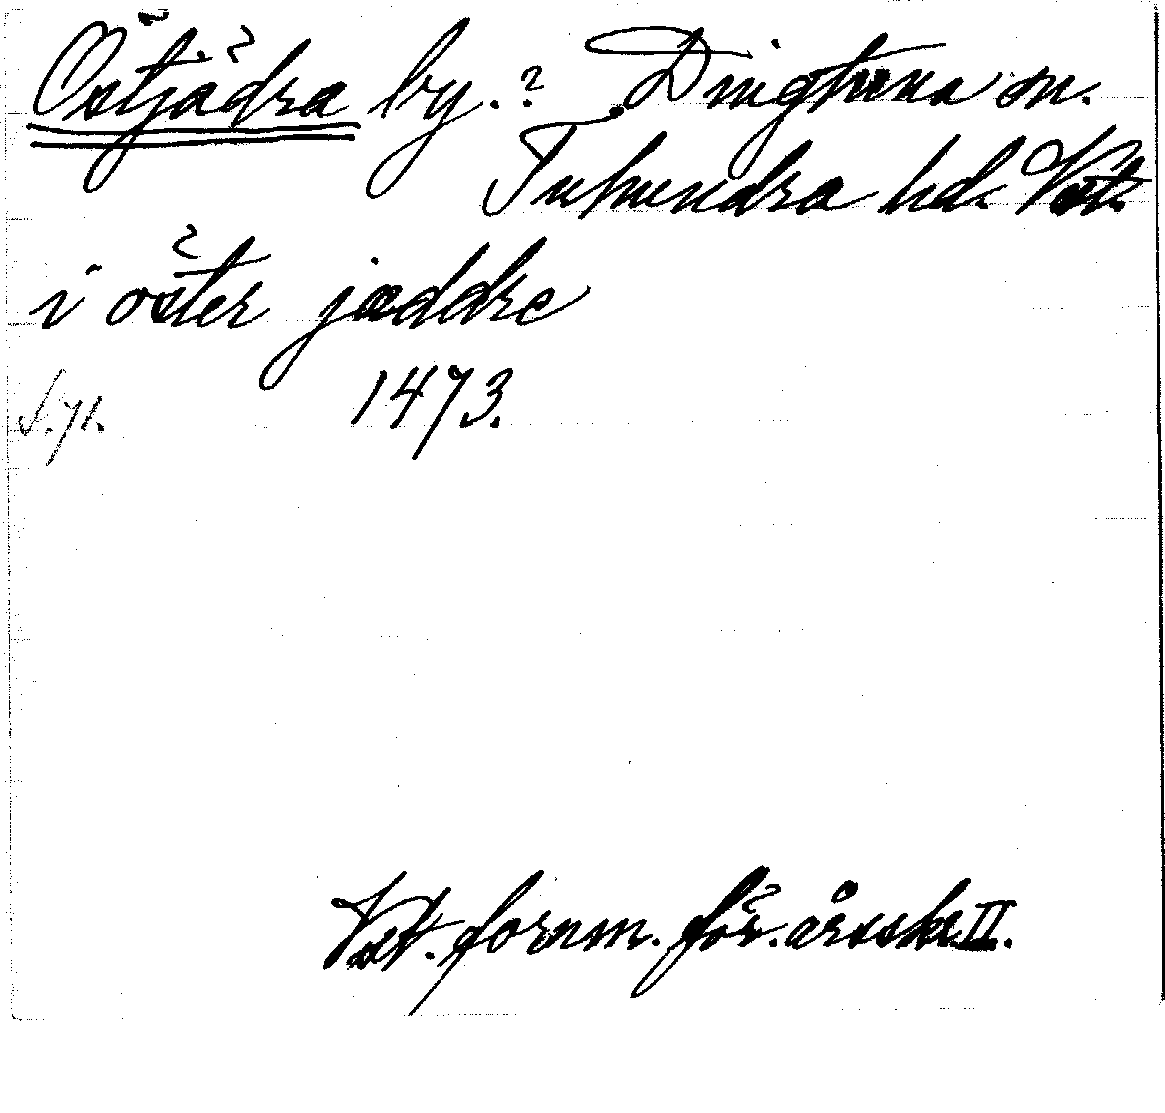 Östjädra by.? Dingtuna sn.
Tuhundra hd. Vstm.
i öster jæddre
S. 71. 1473.
Vstm. fornm. för. årsskr. II.